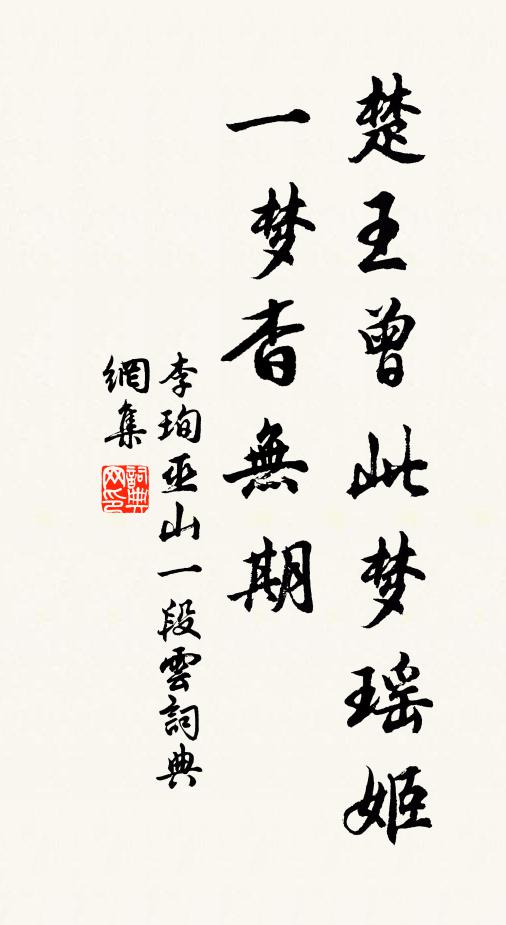 楚王曾此梦瑶姬
一梦杳無期
李珣巫山一段雲詞典
網集
詞典
网印